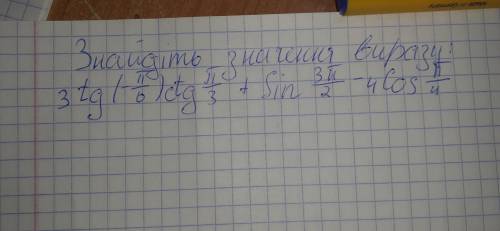 Знайдіть значення виразу:
3 tg(-π/6)ctg π/3 + Sin 3π/2 - 4Cos π/4